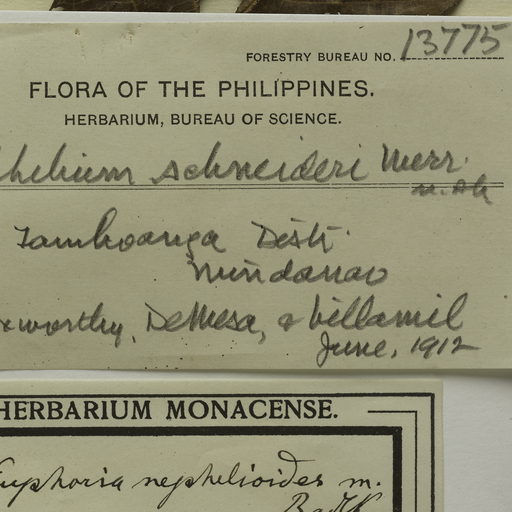 FORESTRY BUREAU NO. 13775
FLORA OF THE PHILIPPINES.
HERBARIUM, BUREAU OF SCIENCE.
helium schneideri Merr.
Zamboanga Distr.
Mindanao
xworthy, DeMesa, & Villamil
June, 1912
HERBARIUM MONACENSE.
Euphoria nephelioides m.